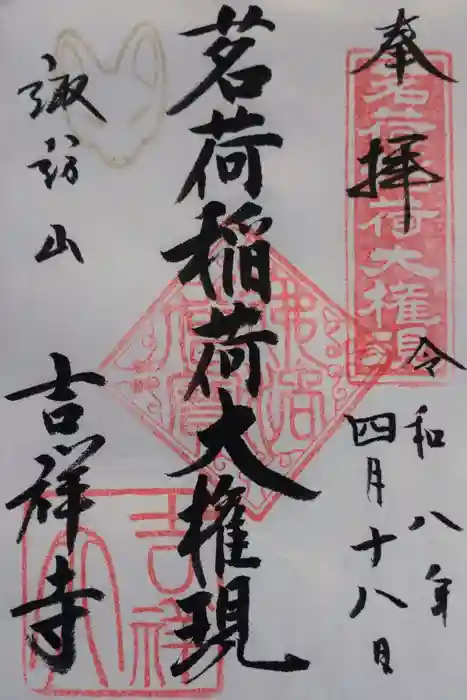 奉拝
令和八年
四月十八日
茗荷稲荷大権現
諏訪山
吉祥寺
茗荷稲荷大権現
佛法僧寳
吉祥